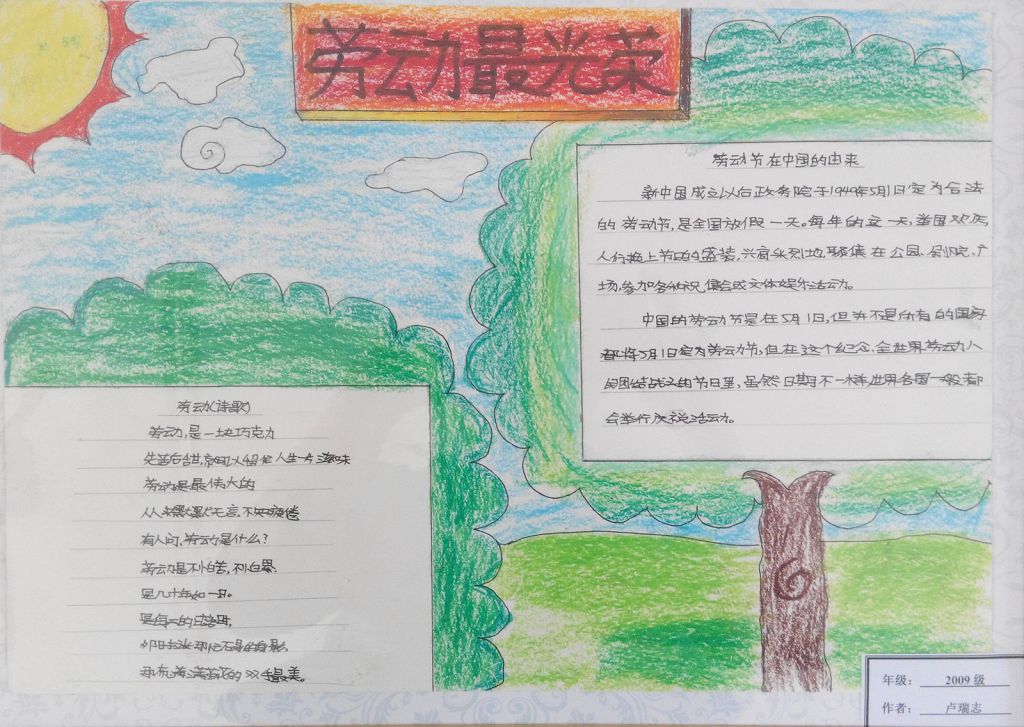 劳动最光荣
劳动节在中国的由来
新中国成立以后政务院于1949年5月1日定为合法
的劳动节,是全国放假一天。每年的这一天,举国欢庆,
人们换上节日的盛装,兴高采烈地聚集在公园、剧院、广
场,参加各种庆祝集会或文体娱乐活动。
中国的劳动节是在5月1日,但并不是所有的国家
都将5月1日定为劳动节,但在这个纪念、全世界劳动人
民团结战斗的节日里,虽然日期不一样,世界各国一般都
会举行庆祝活动。
劳动(诗歌)
劳动,是一块巧克力
先苦后甜,
人生一片滋味
劳动是最伟大的
默默无言、不知疲倦
有人问,劳动是什么?
劳动是不怕苦,不怕累
是几十年如一日。
是每天的日
身影
的双手最美。
年级: 2009 级
作者: 卢瑞志